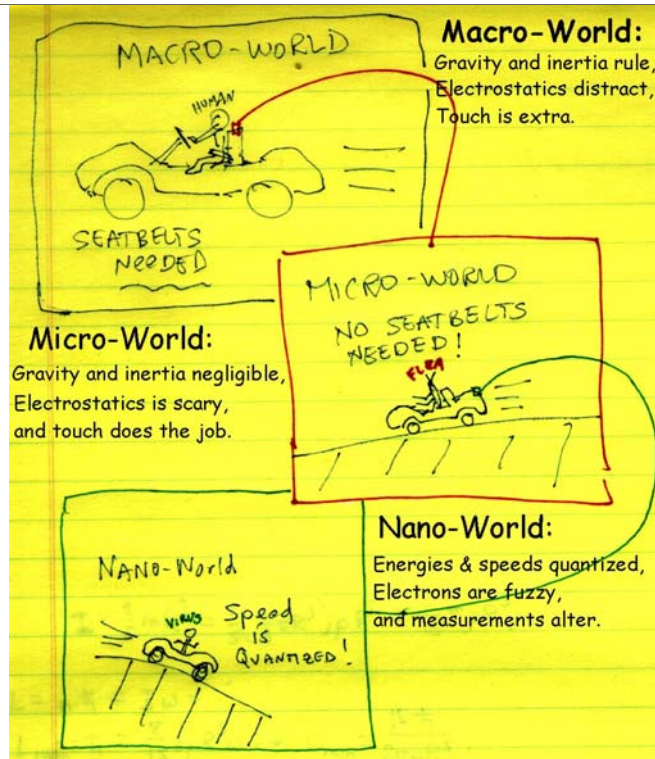 MACRO-WORLD
HUMAN
SEATBELTS
NEEDED
Macro-World:
Gravity and inertia rule,
Electrostatics distract,
Touch is extra.
MICRO-WORLD
NO SEATBELTS
NEEDED!
FLEA
Micro-World:
Gravity and inertia negligible,
Electrostatics is scary,
and touch does the job.
NANO-World
VIRUS
Speed
is
QUANTIZED!
Nano-World:
Energies & speeds quantized,
Electrons are fuzzy,
and measurements alter.